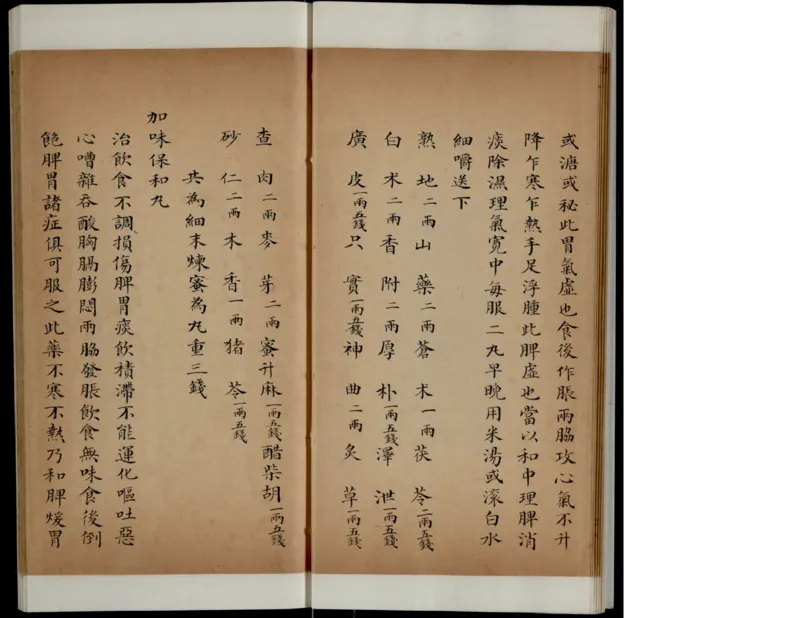 或溏或秘此胃氣虛也食後作脹兩脇攻心氣不升
降乍寒乍熱手足浮腫此脾虛也當以和中理脾消
痰除濕理氣寬中每服二九早晚用米湯或滚白水
細嚼送下
熟地二兩山藥二兩蒼术一兩茯苓二兩五錢
白术二兩香附二兩厚朴一兩五錢澤泄一兩五錢
廣皮一兩五錢只實一兩五錢神曲二兩炙草一兩五錢
查肉二兩麥芽二兩蜜升麻一兩五錢醋柴胡一兩五錢
砂仁二兩木香一兩猪苓一兩五錢
共為細末煉蜜為九重三錢
加味保和九
治飲食不調損傷脾胃痰飲積滯不能運化嘔吐惡
心嘈雜吞酸胸膈膨悶兩脇發脹飲食無味食後倒
飽脾胃諸症俱可服之此藥不寒不熱乃和脾煖胃